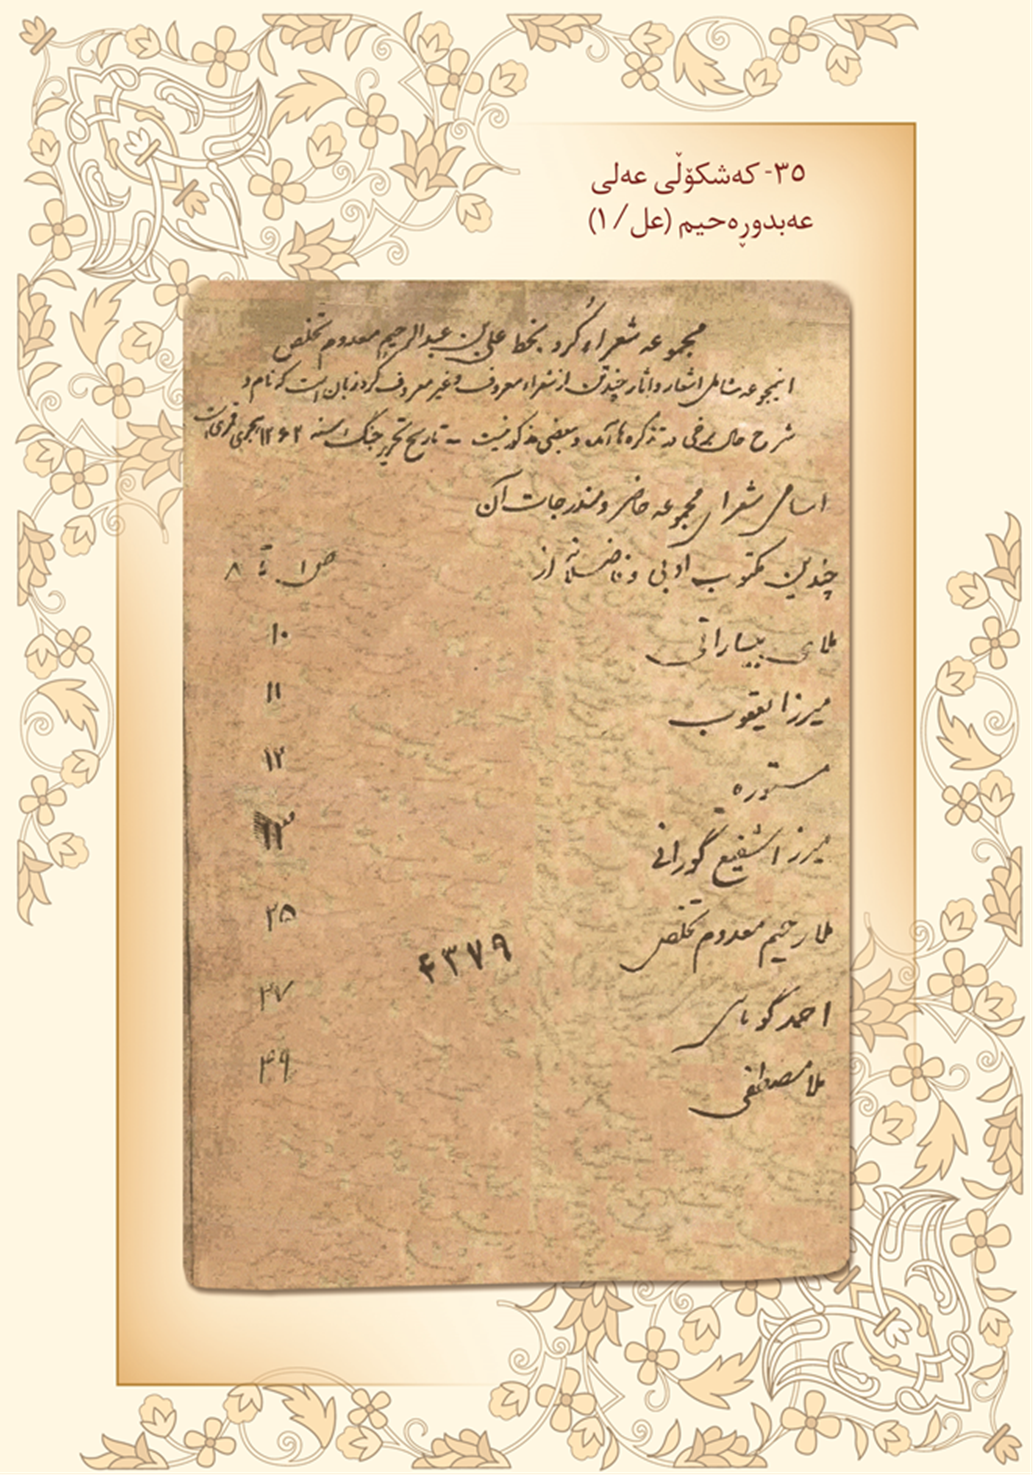 ٣٥- کەشکۆڵی عەلی
عەبدوڕەحیم (عل/١)
مجموعه شعراء کُرد بخط علی بن عبدالرحیم معدوم تخلص
اینمجموعه شامل اشعار و اثار چند تن از شعراء معروف و غیر معروف کرد زبان است که نام و
شرح حال برخی در تذکره ها آمده و بعضی مذکور نیست – تاریخ تحریر جنگ سنه ۱۲۶۲ هجری قمری است
اسامی شعرای مجموعه حاضر و مندرجات آن
چندین مکتوب ادبی و فاضلانه از ص ۱ تا ۸
ملای بیسارانی ۱۰
میرزا یعقوب ۱۱
مستوره ۱۲
میرزا شفیع گورانی ۱۳
ملا رحیم معدوم تخلص ۲۵
۴۳۷۹
احمد ۲۷
ملا مصطفی ۴۹